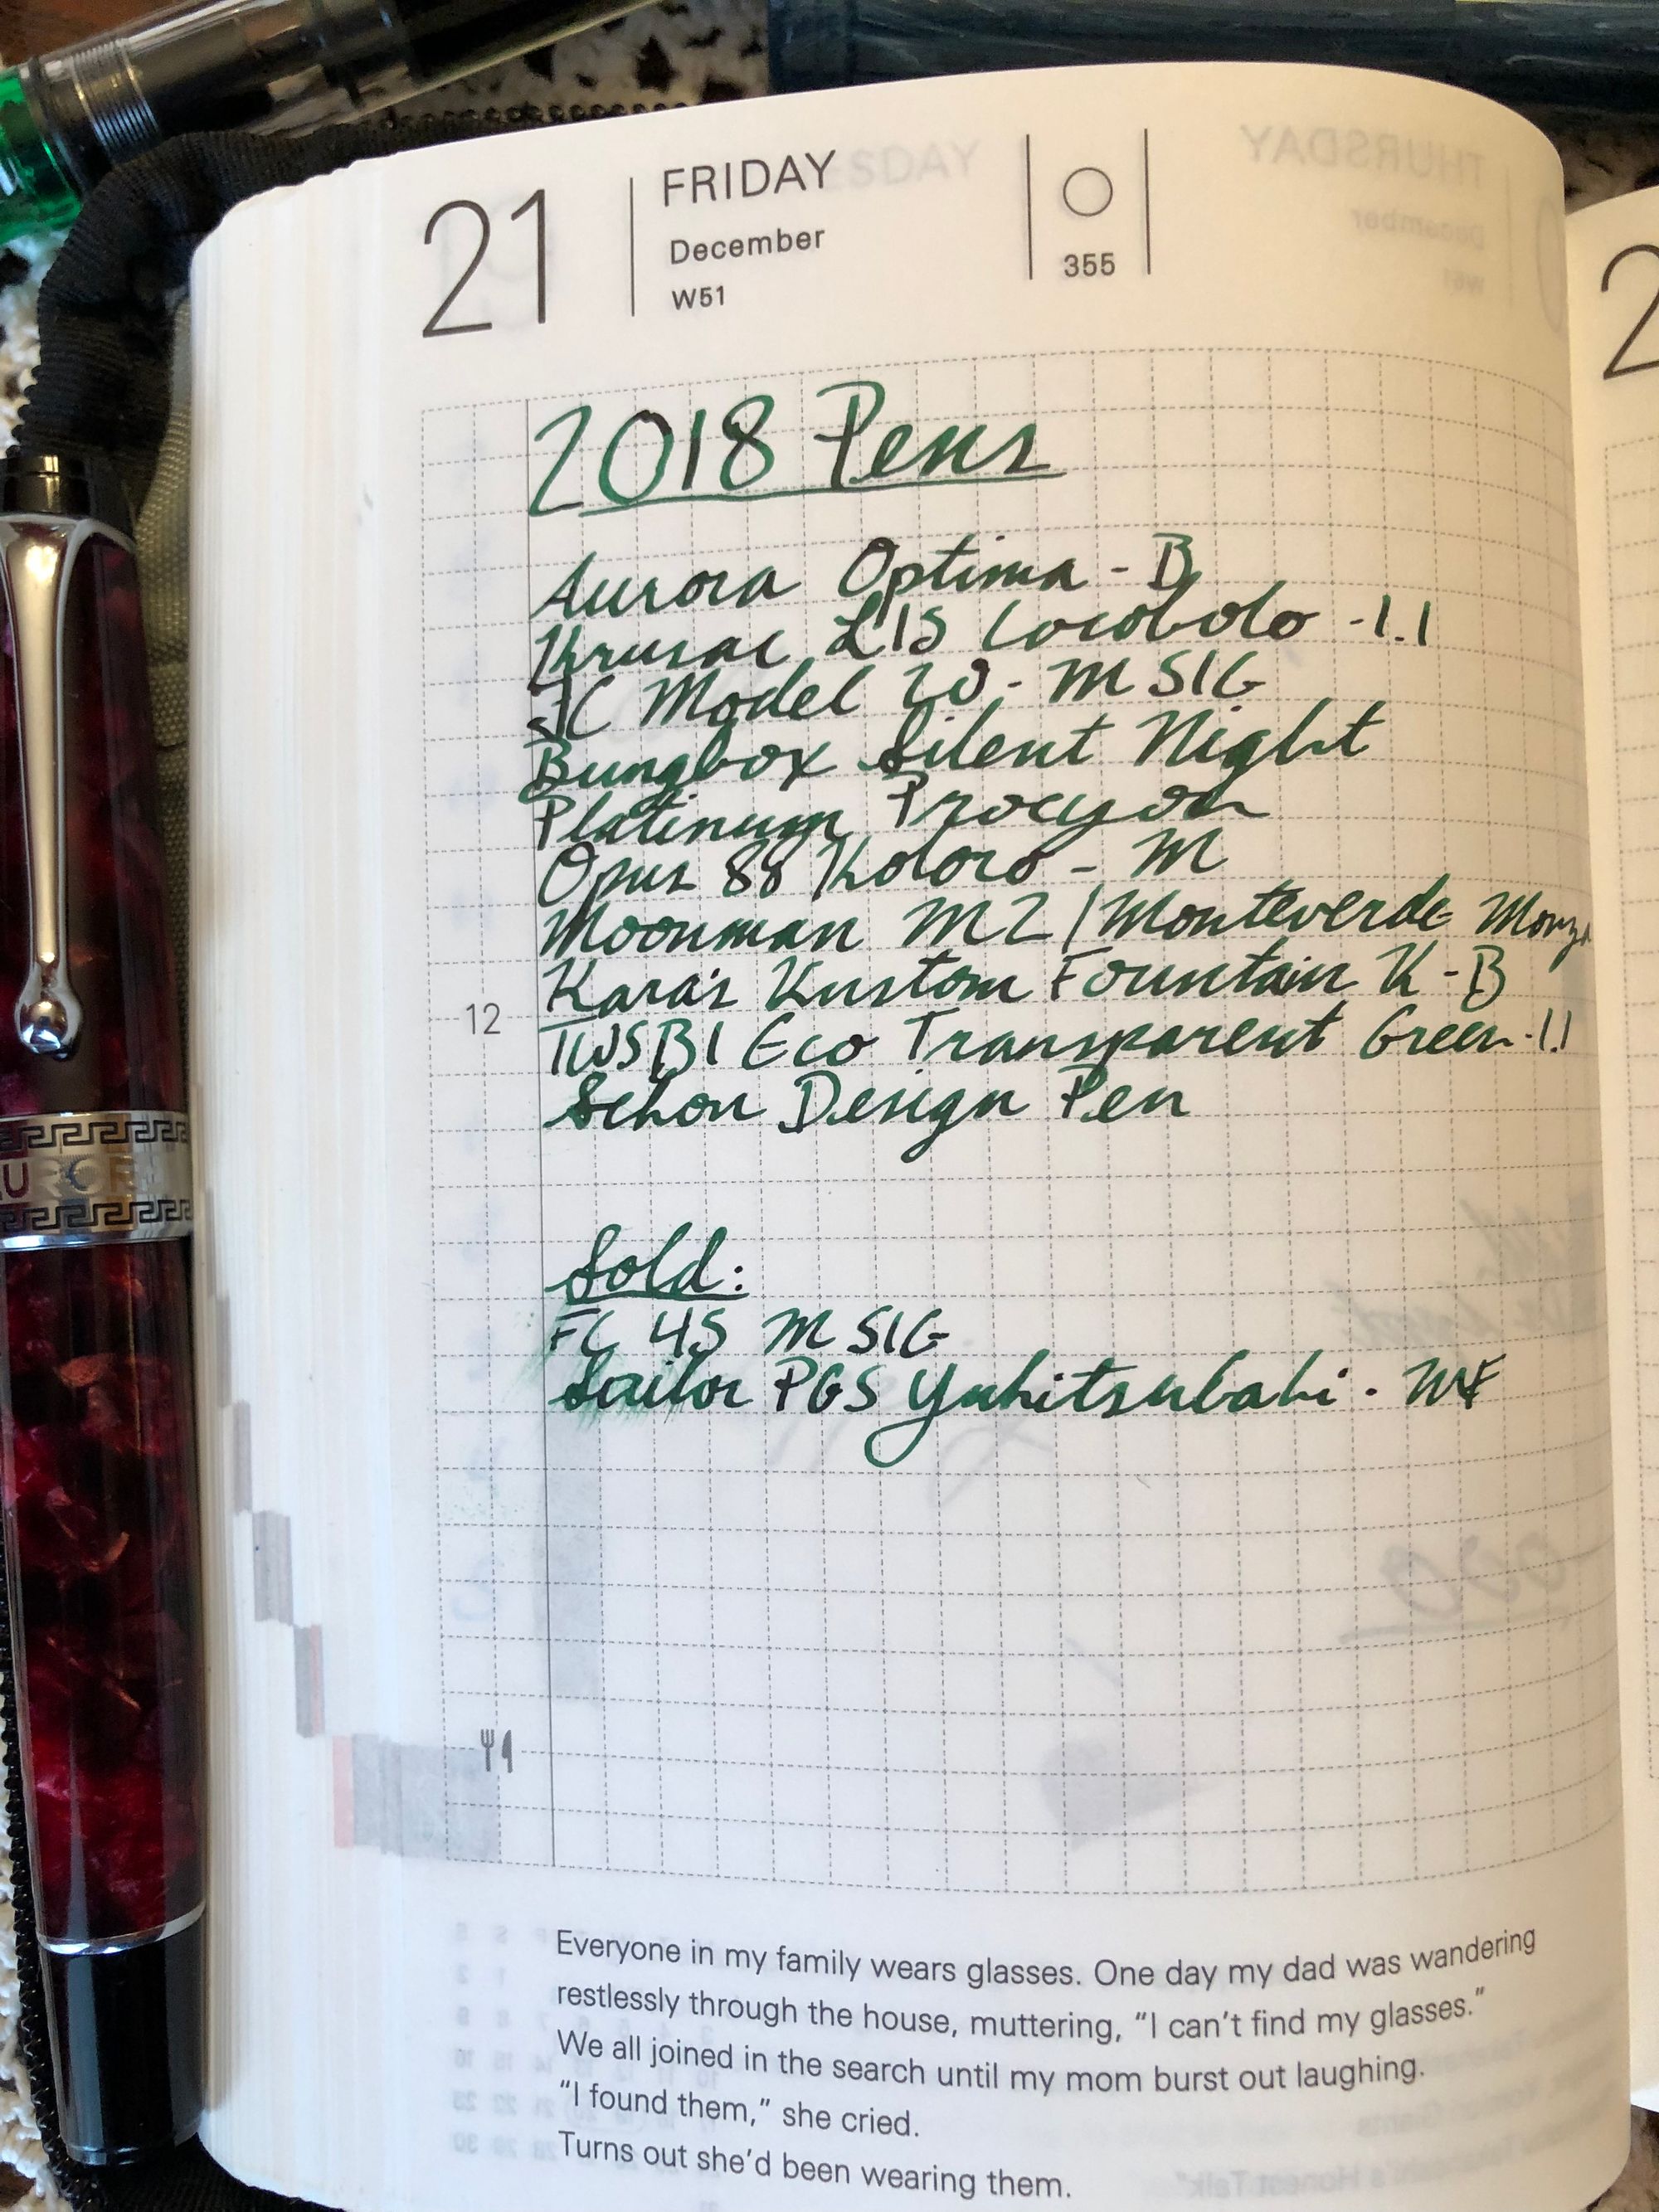 21
FRIDAY
December
W51
355
2018 Pens
Aurora Optima - B
Krusac L15 Cocobolo - 1.1
JC Model 20 - M SIG
Bungbox Silent Night
Platinum Procyon
Opus 88 Koloro - M
Moonman M2 / Monteverde Monza
Karas Kustom Fountain K - B
TWSBI Eco Transparent Green - 1.1
Schon Design Pen
12
Sold:
FC 45 M SIG
Sailor PGS Yukitsubaki - MF
Everyone in my family wears glasses. One day my dad was wandering
restlessly through the house, muttering, “I can’t find my glasses.”
We all joined in the search until my mom burst out laughing.
“I found them,” she cried.
Turns out she’d been wearing them.